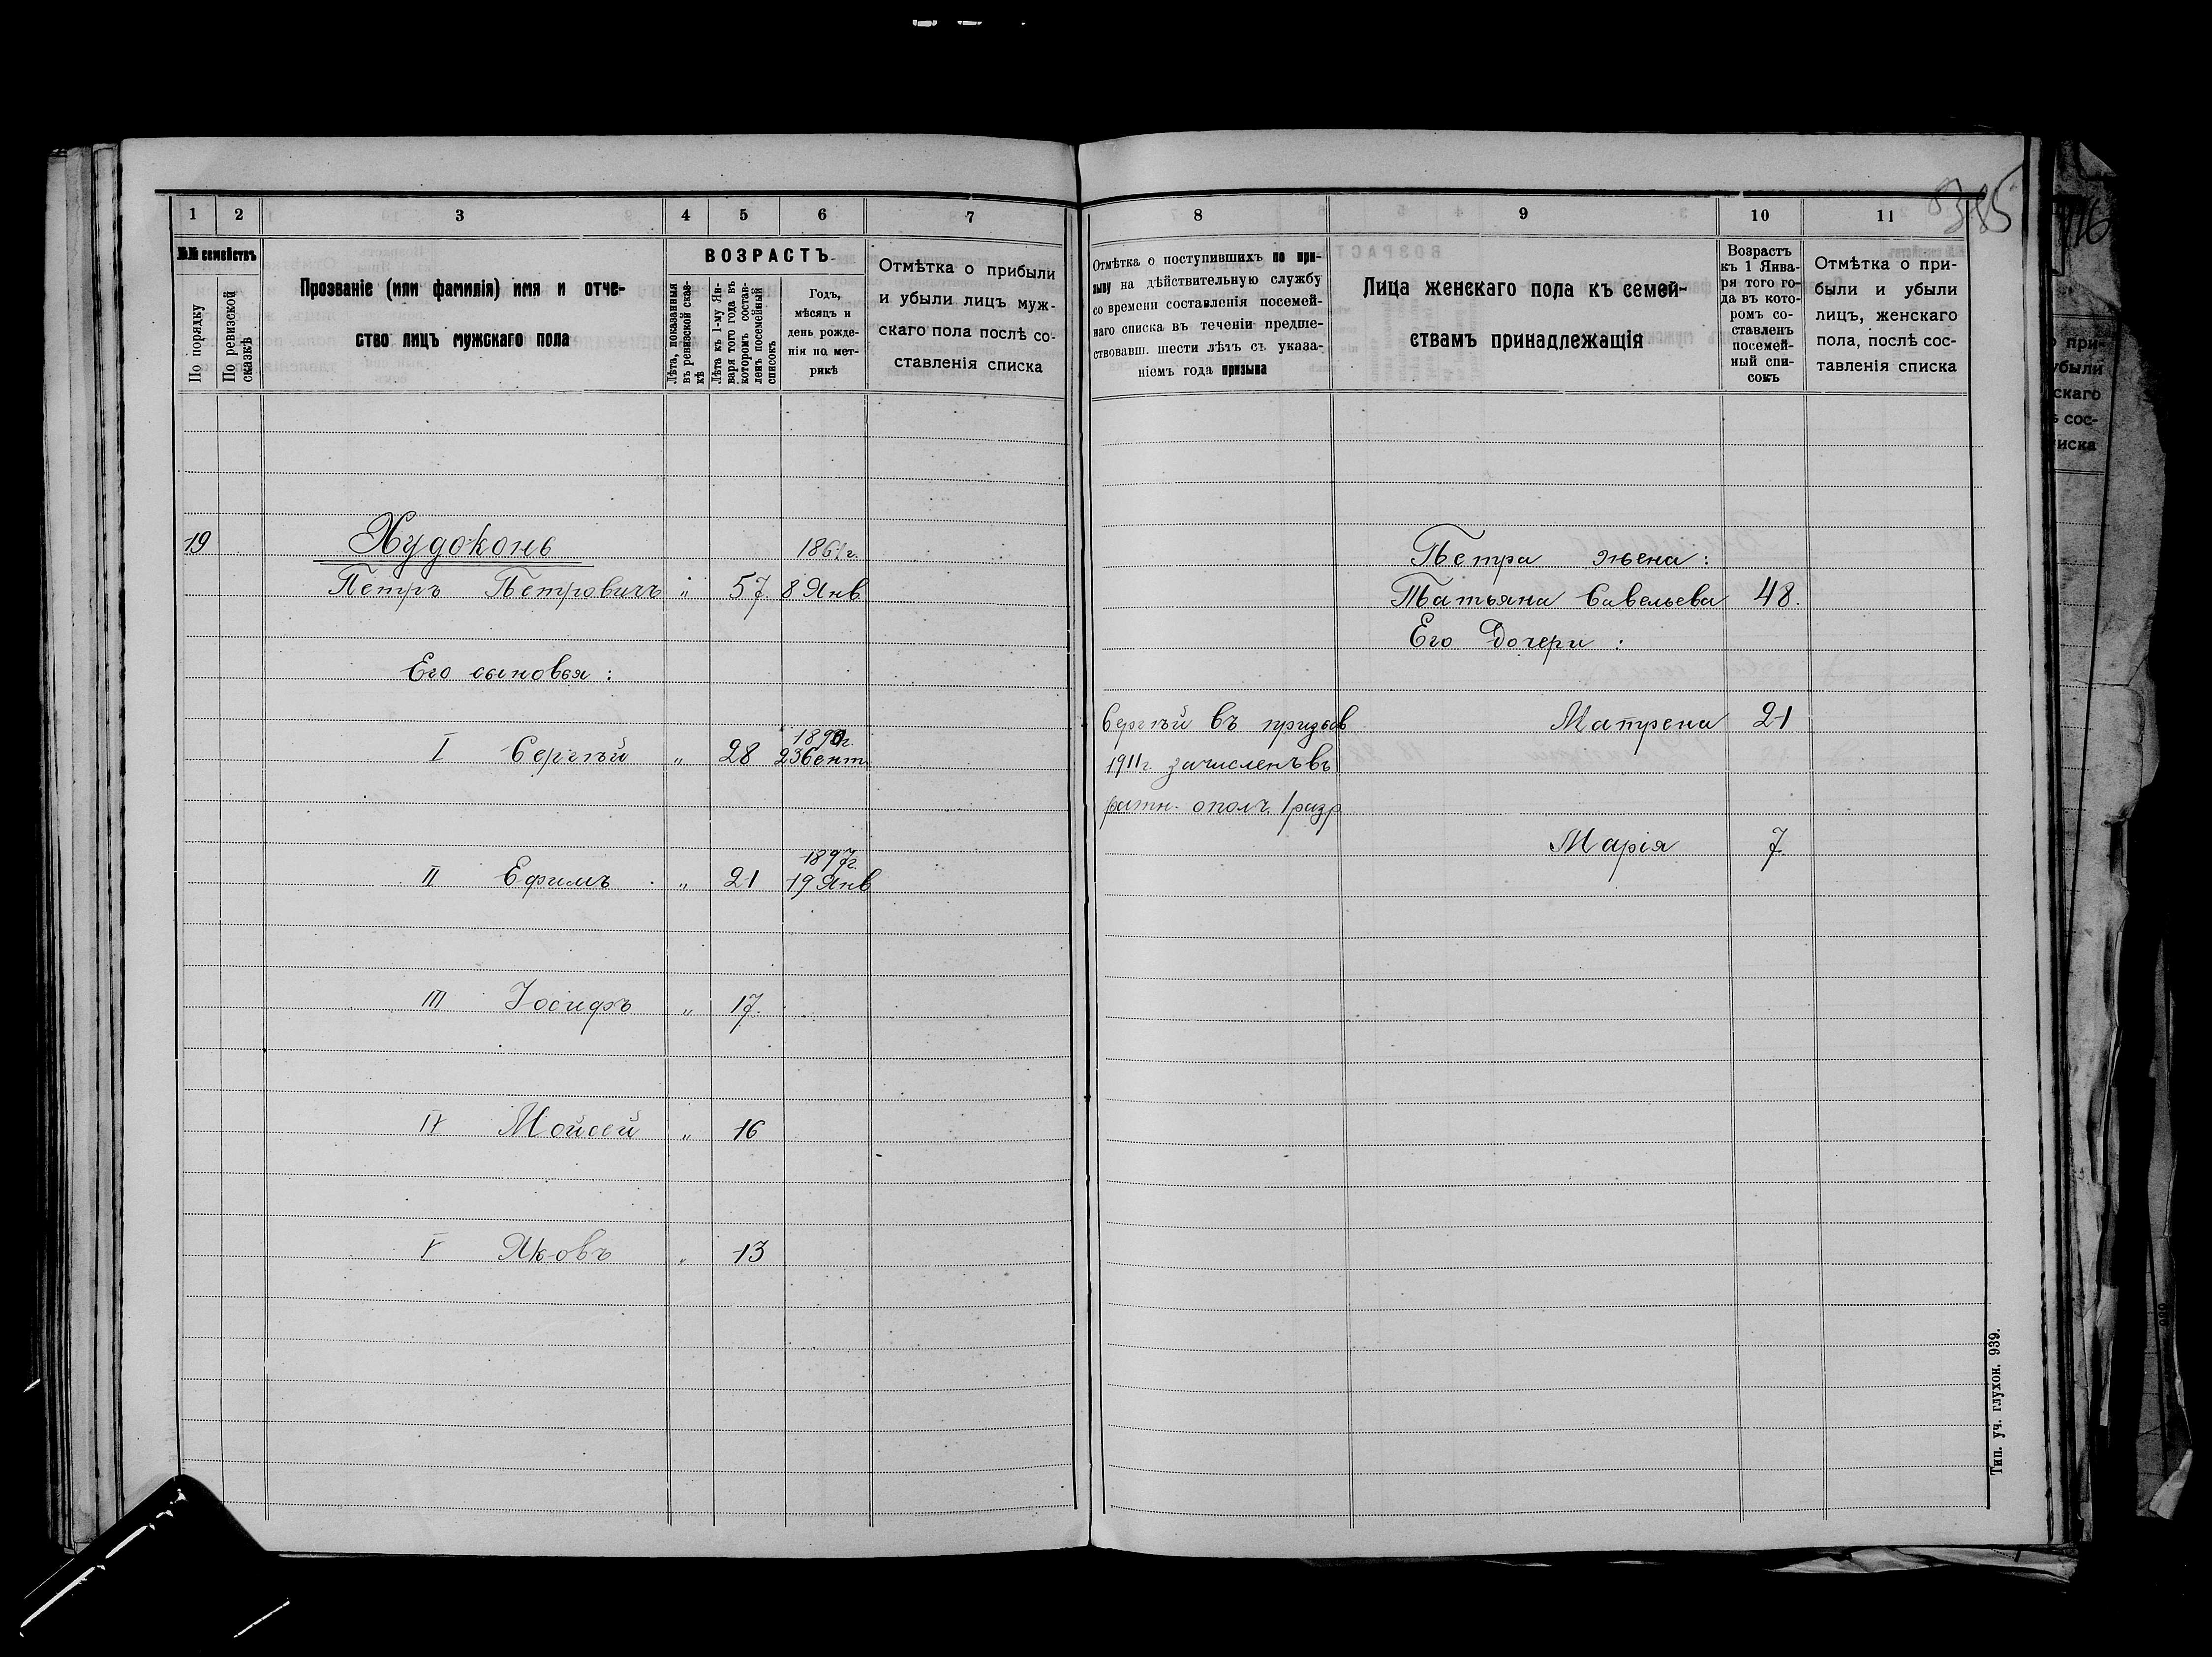 1 2 3 4 5 6 7
№№ семействъ
По порядку
По ревизской сказкѣ
Прозваніе (или фамилія) имя и отче-
ство лицъ мужскаго пола
ВОЗРАСТЪ
Лѣта, показанныя
въ ревизской сказ-
кѣ
Лѣта къ 1-му Ян-
варя того года въ
которомъ состав-
ленъ посемейный
списокъ
Годъ,
мѣсяцъ и
день рожде-
нія по мет-
рикѣ
Отмѣтка о прибыли
и убыли лицъ муж-
скаго пола послѣ со-
ставленія списка
19 Худоконь 1861г.
Петръ Петровичъ " 57 8 Янв
Его сыновья:
1890г.
I Сергѣй " 28 23 Сент
1897г
II Ефимъ " 21 19 Янв
III Іосифъ " 17.
IV Мойсей " 16
V Яковъ " 13
8 9 10 11
385
Отмѣтка о поступившихъ по при-
зыву на дѣйствительную службу
со времени составленія посемей-
наго списка въ теченіи предше-
ствовавш. шести лѣтъ съ указа-
ніемъ года призыва
Лица женскаго пола къ семей-
ствамъ принадлежащія
Возрастъ
къ 1 Янва-
ря того го-
да въ кото-
ромъ со-
ставленъ
посемей-
ный спи-
сокъ
Отмѣтка о при-
были и убыли
лицъ, женскаго
пола, послѣ сос-
тавленія списка
Петра жена:
Татьяна Савельева 48.
Его Дочери:
Сергѣй въ призыв Матрена 21
1911г. зачисленъ въ
ратн. ополч. 1 разр.
Марія 7
Тип. уч. глухон. 939.
116
при-
убыли
скаго
сос-
иска